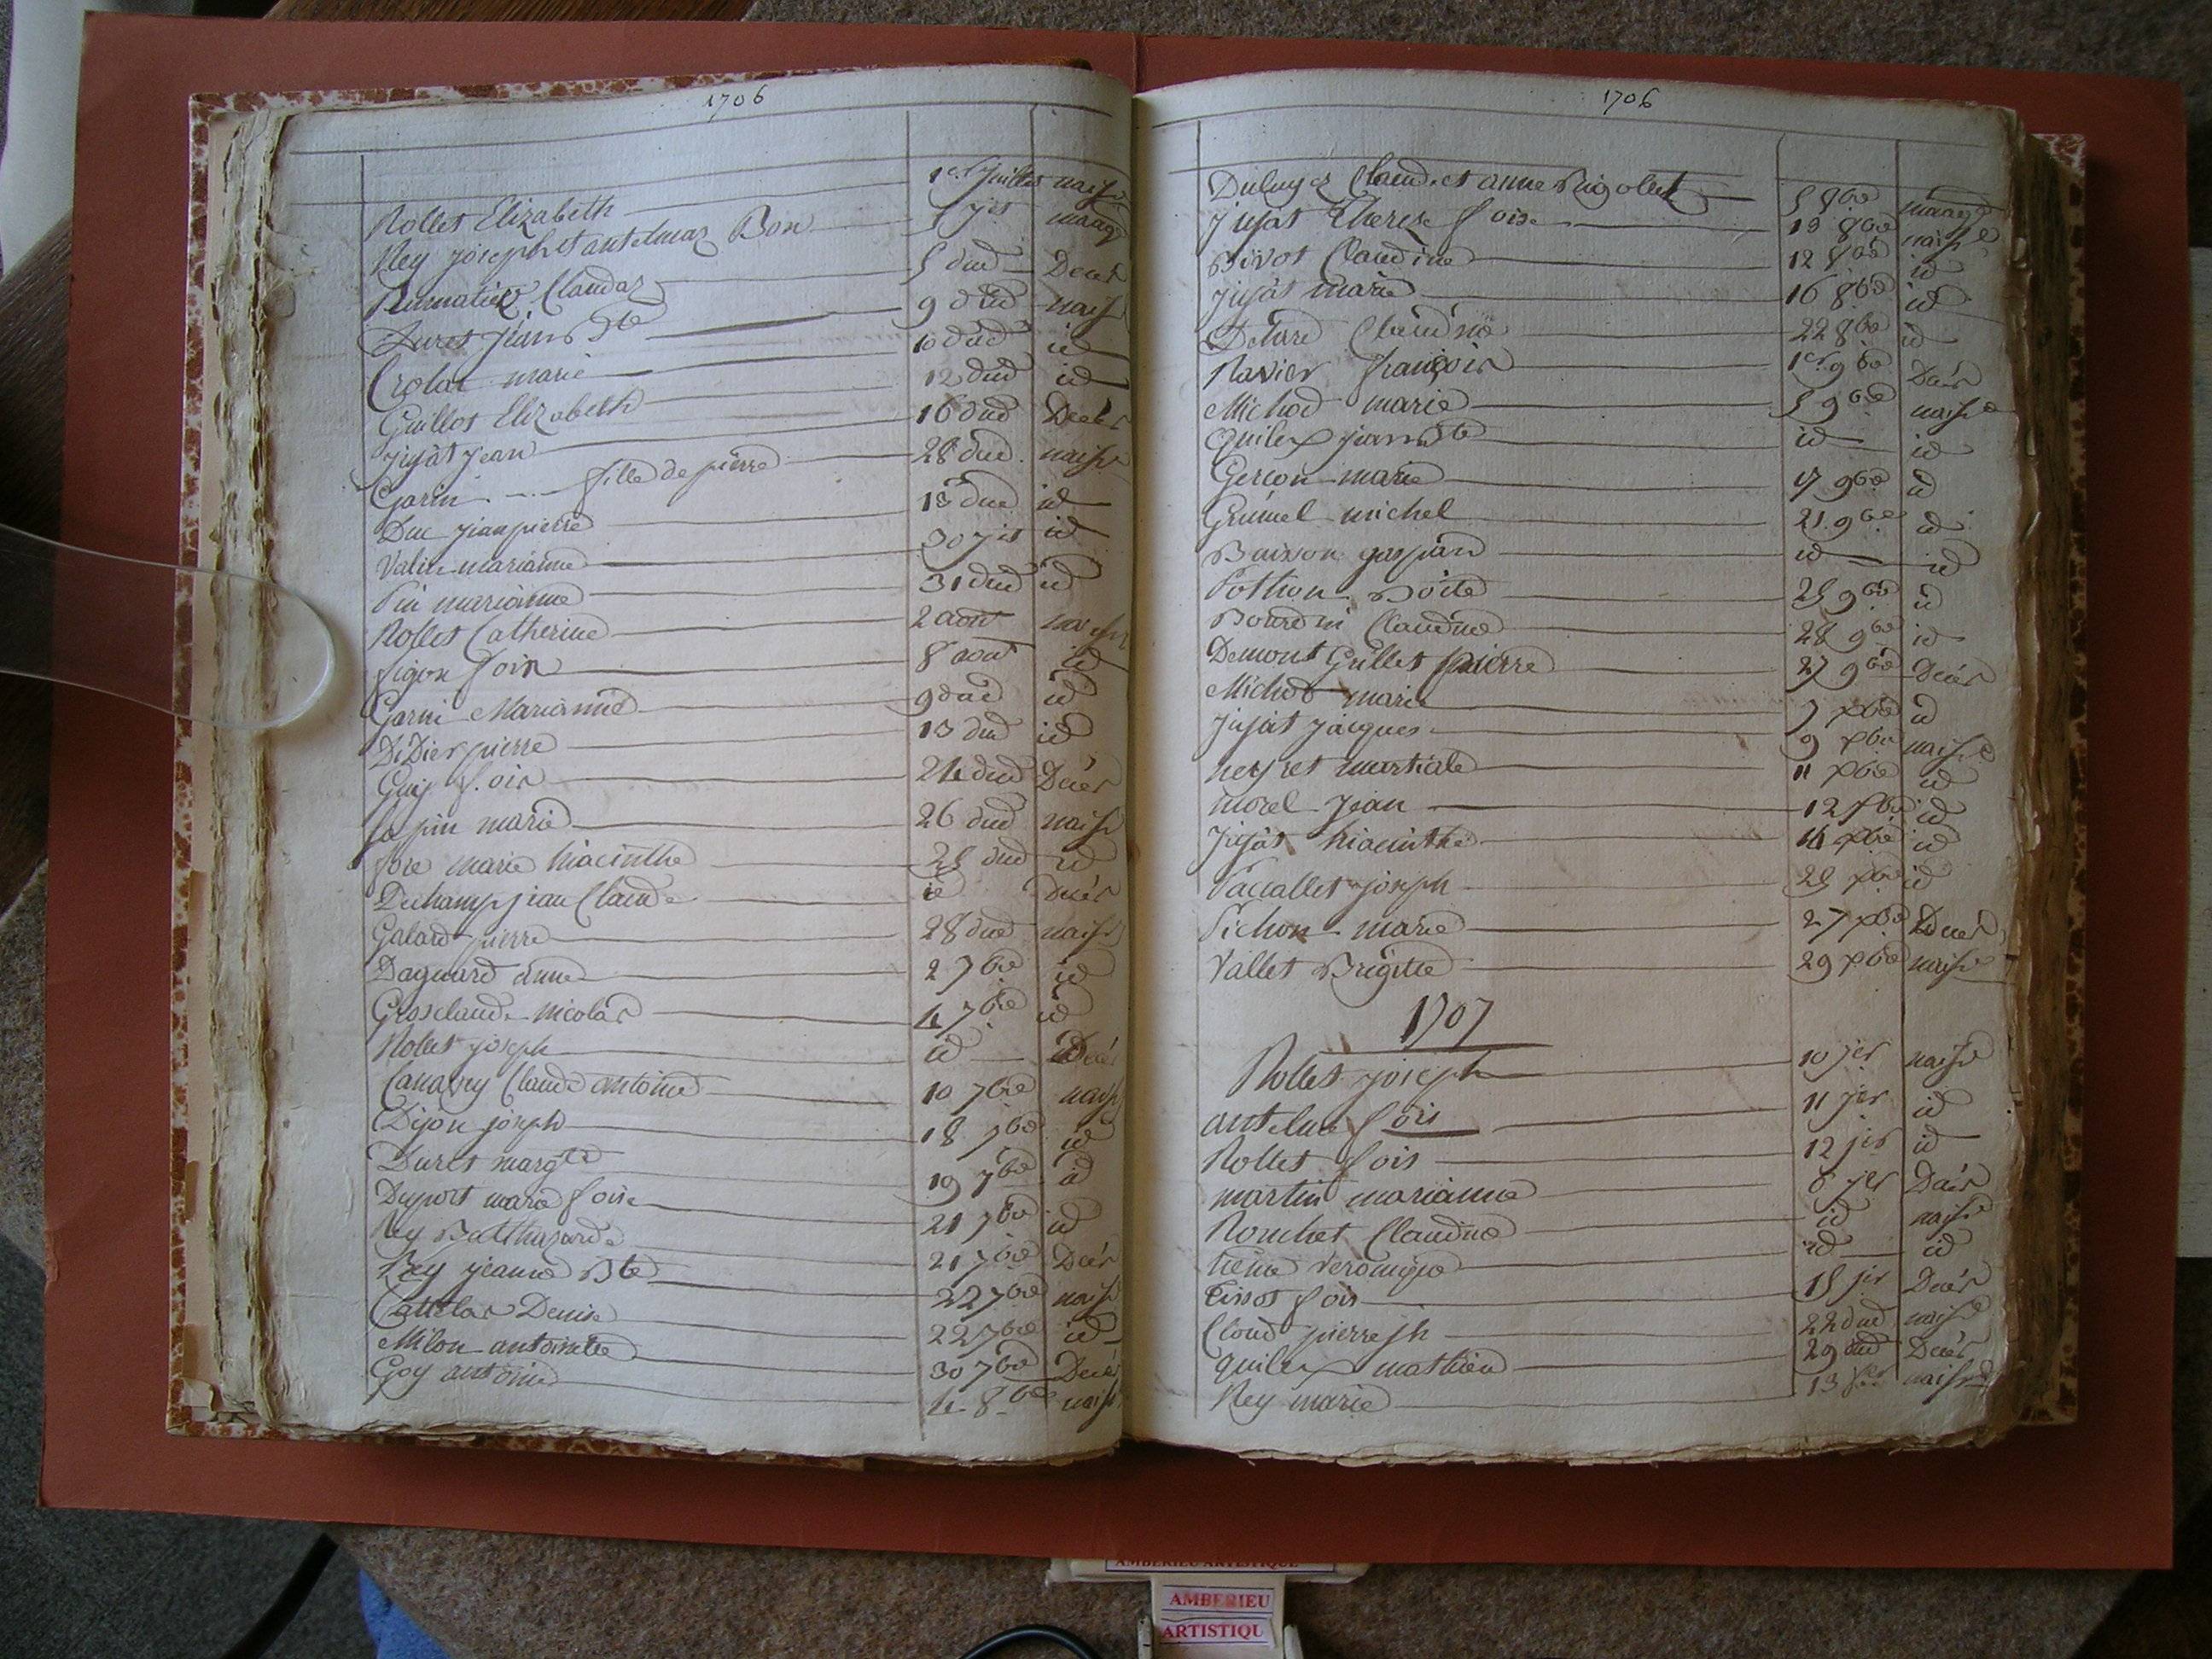 1706
Rollet Elizabeth 1er Juillet naisce
Rey joseph et antelmaz Bon 5 jet mariage
Claudaz 5 dud Décès
Duret jean Bte 9 dud naisce
marie 10 dud id
Guillot Elizabeth 12 dud id
jujat jean 16 dud Décès
Garin --- fille de pierre 28 dud naisce
Duc jean pierre 13 dud id
Valin marianne 30 jet id
Pin marianne 31 dud id
Rollet Catherine 2 aout naisce
figon fois 8 aout id
Garni Marianne 9 dud id
DiDier pierre 13 dud id
Guy fois 24 dud Décès
la pin marie 26 dud naisce
fore marie hiacinthe 25 dud id
Duchamp jean Claude id décès
Galand pierre 28 dud naisce
Daguard anne 2 7bre id
Grosclaude nicolas 4 7bre id
Rollet joseph id Décès
Canavry Claude antoine 10 7bre naisce
Dijon joseph 18 7bre id
Duret margte 19 7bre id
Duport marie foise 21 7bre id
Rey Balthazarde 21 7bre Décès
Rey jeanne Bte 22 7bre naisce
Denise 22 7bre id
Milon antoinette 30 7bre Décès
Goy antoine 4 8bre naisce
1706
Claude et anne Rigollet 5 8bre mariage
jujat Therese foise 13 8bre naisce
Bivot Claudine 12 8bre id
jujat marie 16 8bre id
Delare Claudine 22 8bre id
Ravier françois 1er 9bre Décès
Michod marie 5 9bre naisce
quilex jean Bte id id
Gercon marie 17 9bre id
Grumel michel 21 9bre id
Buisson gaspard id id
Pothon Boite 25 9bre id
Bourdin Claudine 28 9bre id
Demont Grillet pierre 27 9bre Décès
Michod marie 7 xbre id
jujat jacques 9 xbre naisce
neyret martiale 11 xbre id
morel jean 12 xbre id
jujat hiacinthe 14 xbre id
Paccallet joseph 25 xbre id
Pichon marie 27 xbre Décès
Vallet Brigitte 29 xbre naisce
1707
Rollet joseph 10 jer naisce
antelme fois 11 jer id
Rollet fois 12 jer id
martin marianne 6 jer Décès
Ronchet Claudine id naisce
veronique id id
Tissot fois 15 jer Décès
Cloud pierre jh 22 dud naisce
quilex mathieu 29 dud Décès
Rey marie 13 fer naisce
AMBERIEU ARTISTIQUE
AMBERIEU
ARTISTIQU